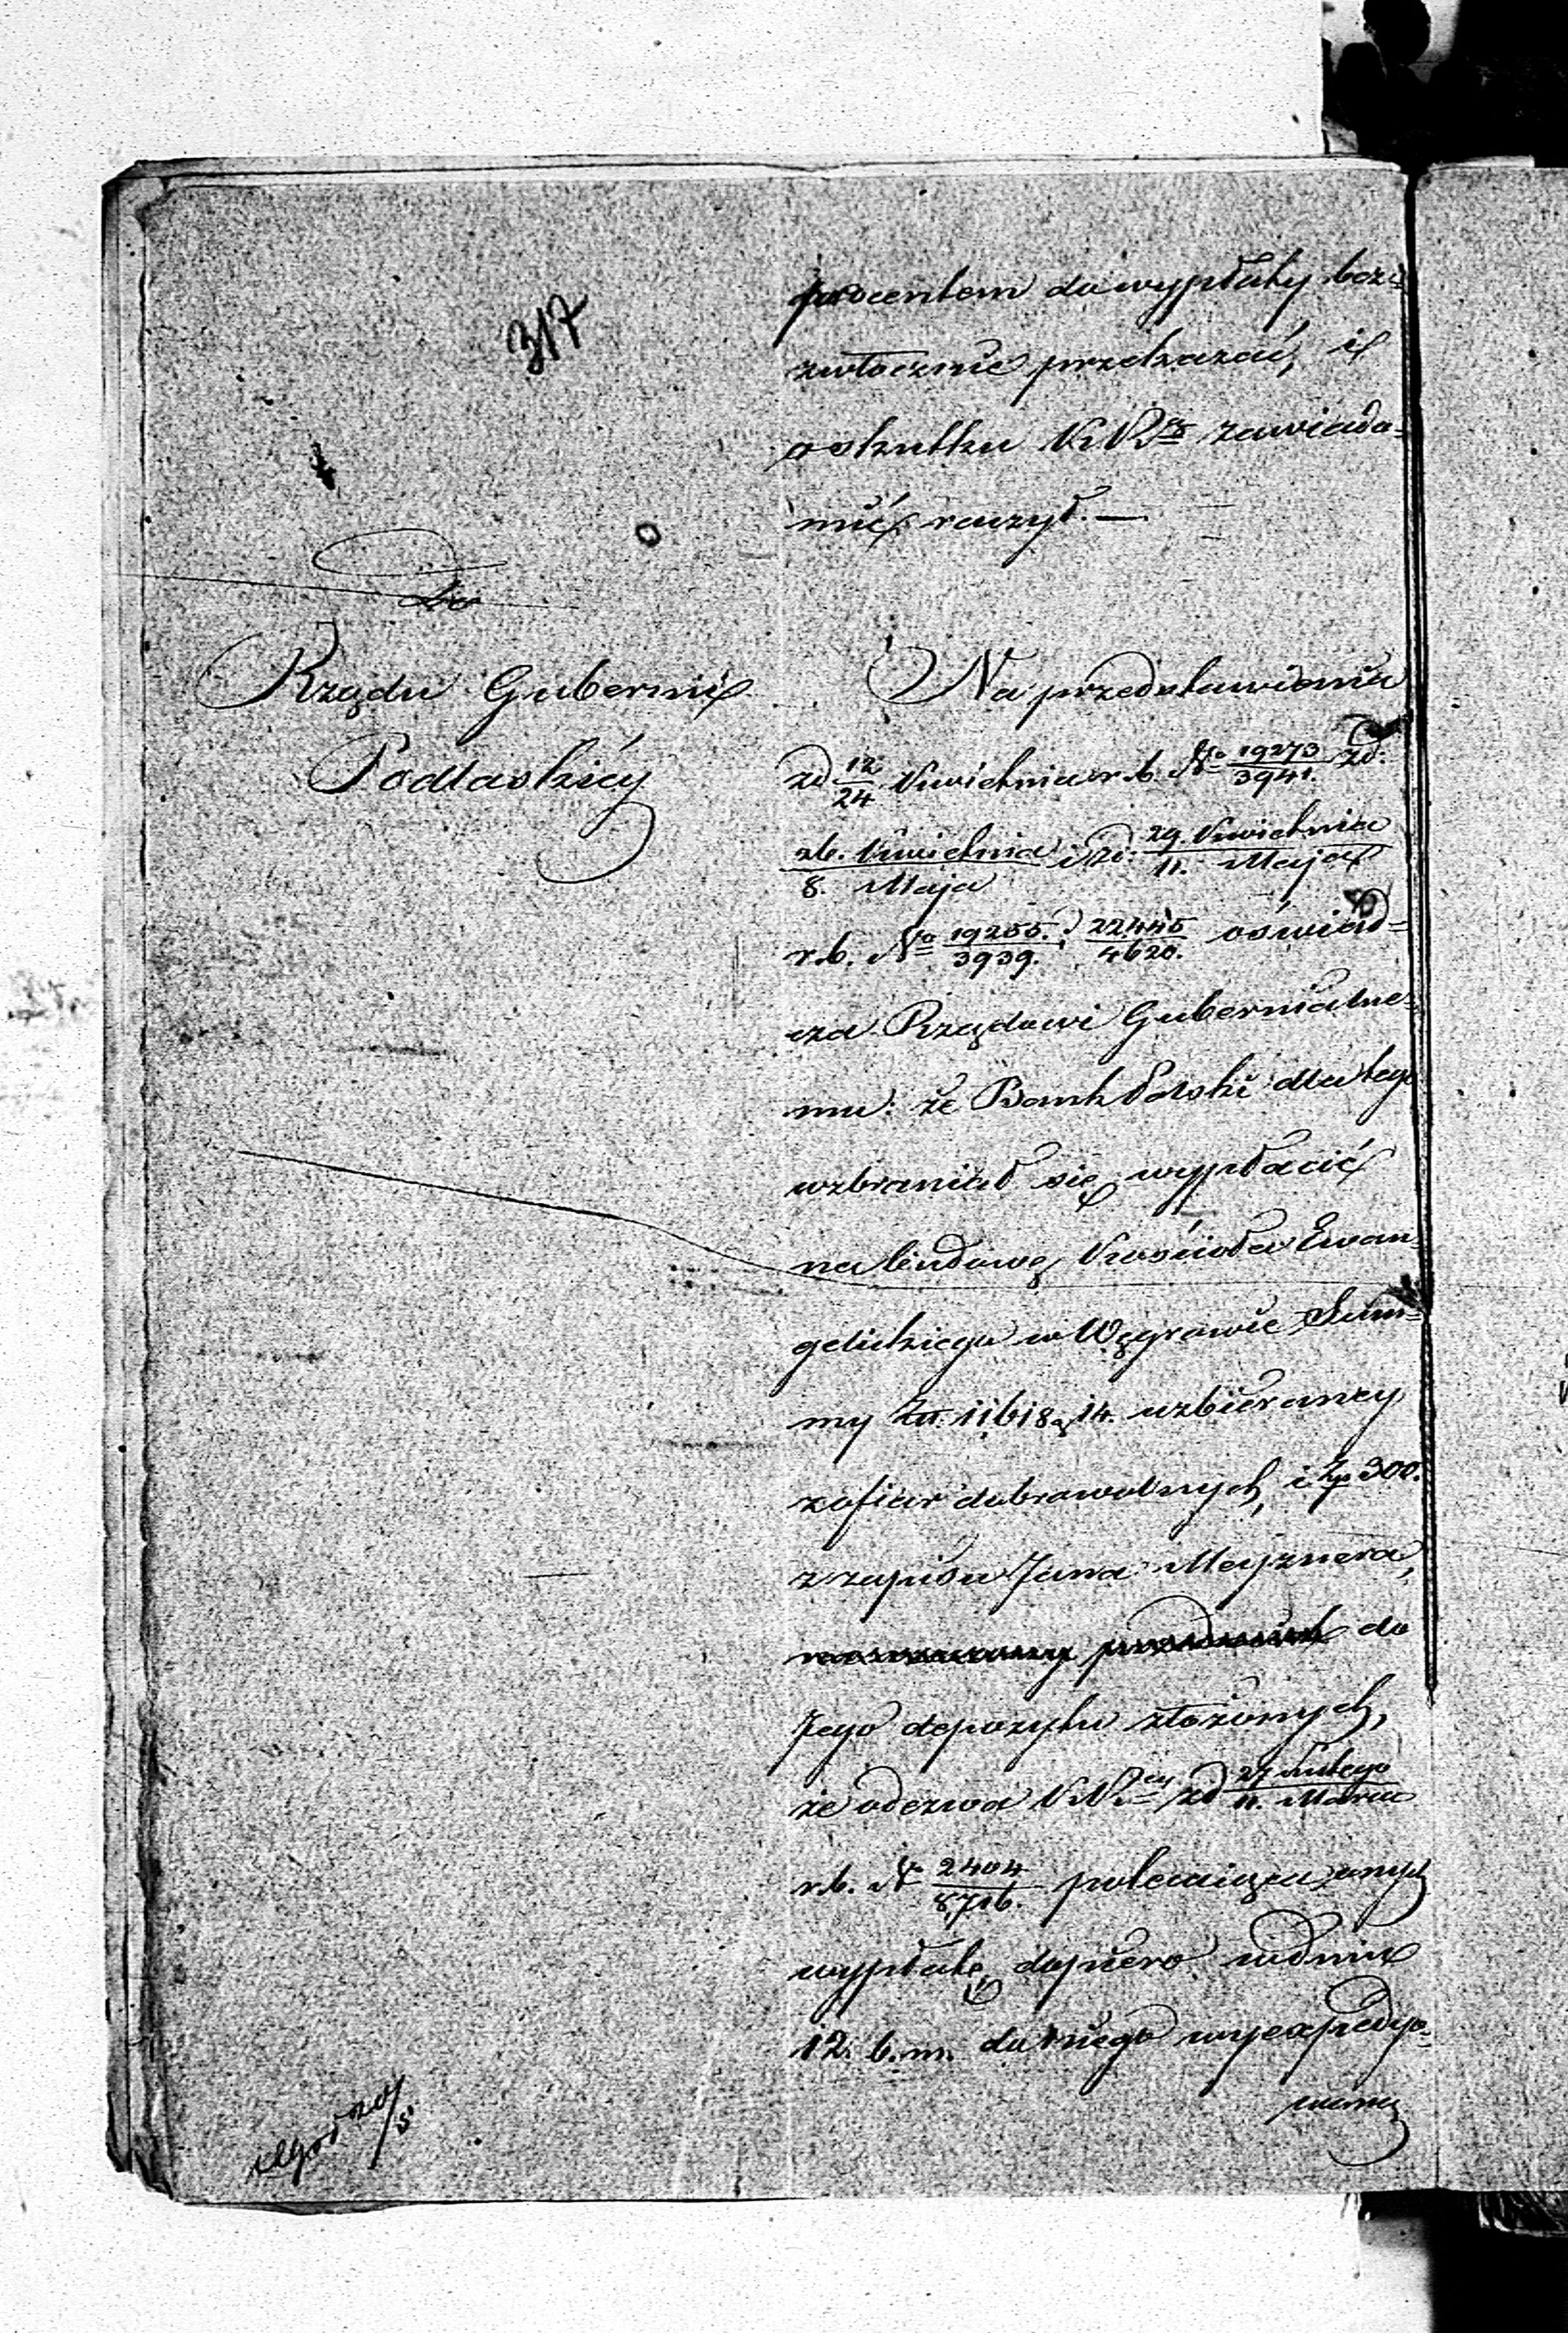 317
procentem do wypłaty bez=
zwłocznie przekazać, i
o skutku K. R. zawiado=
mić raczył. —
Do
Rządu Gubernii
Podlaskiey
Na przedstawienia
zd 12/24 Kwietnia r. b. No 19273/3941. zd.
26. Kwietnia/8. Maja i zd. 29. Kwietnia/11. Maja
r. b. No 19255./3939. i 22445/4620. oświad=
cza Rządowi Gubernialne=
mu: że Bank Polski dla tego
wzbraniał się wypłacić
na budowę Kościoła Ewan=
gelickiego w Węgrowie Sum=
my Zło. 11,618 g 14. uzbieraney
z ofiar dobrowolnych, i Zp 300.
z zapisu Jana Meyznera,
do
Jego depozytu złożonych,
że odezwa K. R. zd 27 Lutego/11. Marca
r. b. No 2404/8,716. polecaiąca onych
wypłatę dopiero w dniu
12. b. m. do niego wyexpedyo=
waną
20/5